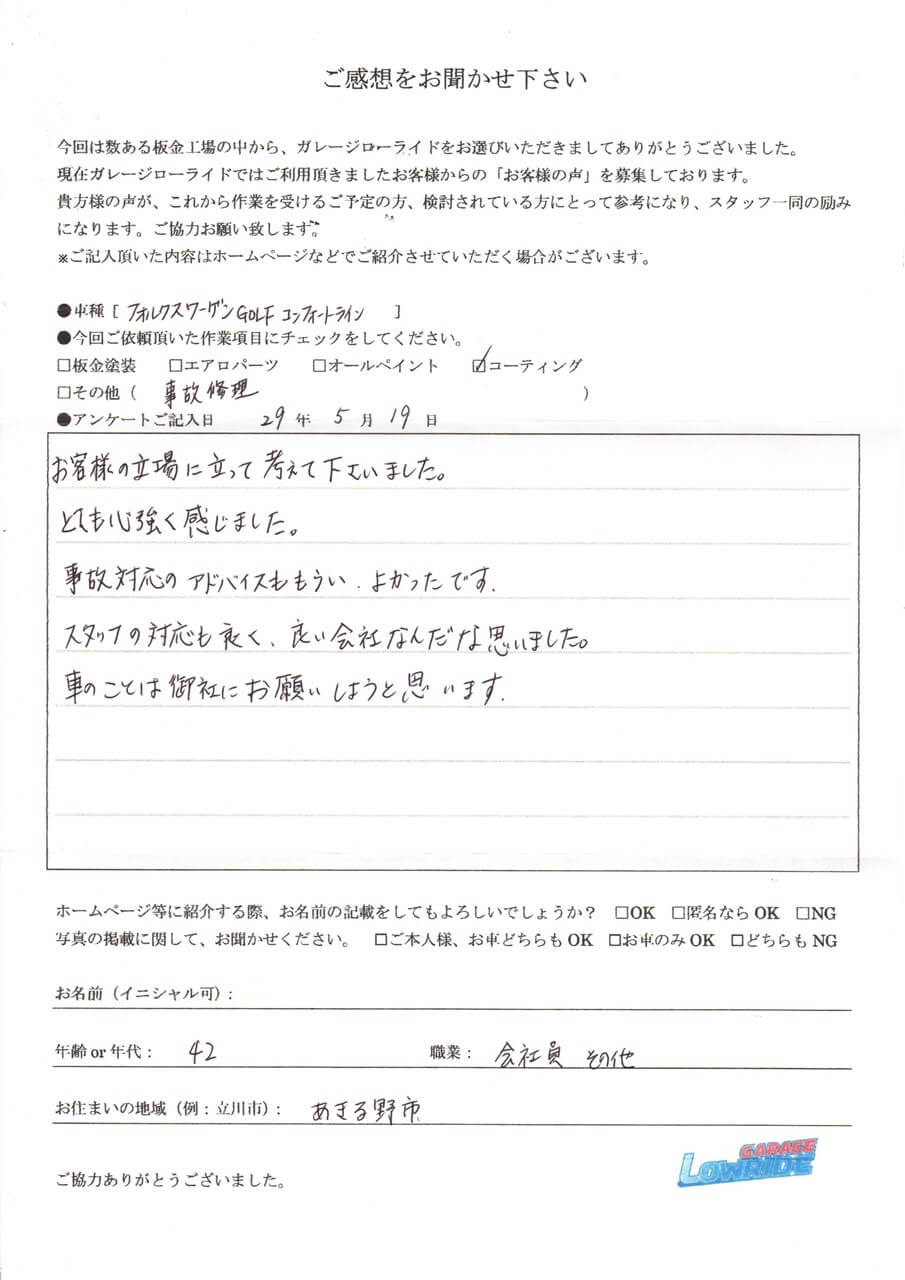 ご感想をお聞かせ下さい
今回は数ある板金工場の中から、ガレージローライドをお選びいただきましてありがとうございました。
現在ガレージローライドではご利用頂きましたお客様からの「お客様の声」を募集しております。
貴方様の声が、これから作業を受けるご予定の方、検討されている方にとって参考になり、スタッフ一同の励み
になります。ご協力お願い致します。
※ご記入頂いた内容はホームページなどでご紹介させていただく場合がございます。
●車種[ フォルクスワーゲンGOLF コンフォートライン ]
●今回ご依頼頂いた作業項目にチェックをしてください。
□板金塗装 □エアロパーツ □オールペイント ☑コーティング
□その他( 事故修理 )
●アンケートご記入日 29年 5月 19日
お客様の立場に立って考えて下さいました。
とても心強く感じました。
事故対応のアドバイスももらい、よかったです。
スタッフの対応も良く、良い会社なんだな思いました。
車のことは御社にお願いしようと思います。
ホームページ等に紹介する際、お名前の記載をしてもよろしいでしょうか? □OK □匿名ならOK □NG
写真の掲載に関して、お聞かせください。 □ご本人様、お車どちらもOK □お車のみOK □どちらもNG
お名前(イニシャル可):
年齢or年代: 42 職業: 会社員 その他
お住まいの地域(例:立川市): あきる野市
ご協力ありがとうございました。
GARAGE
LOWRIDE